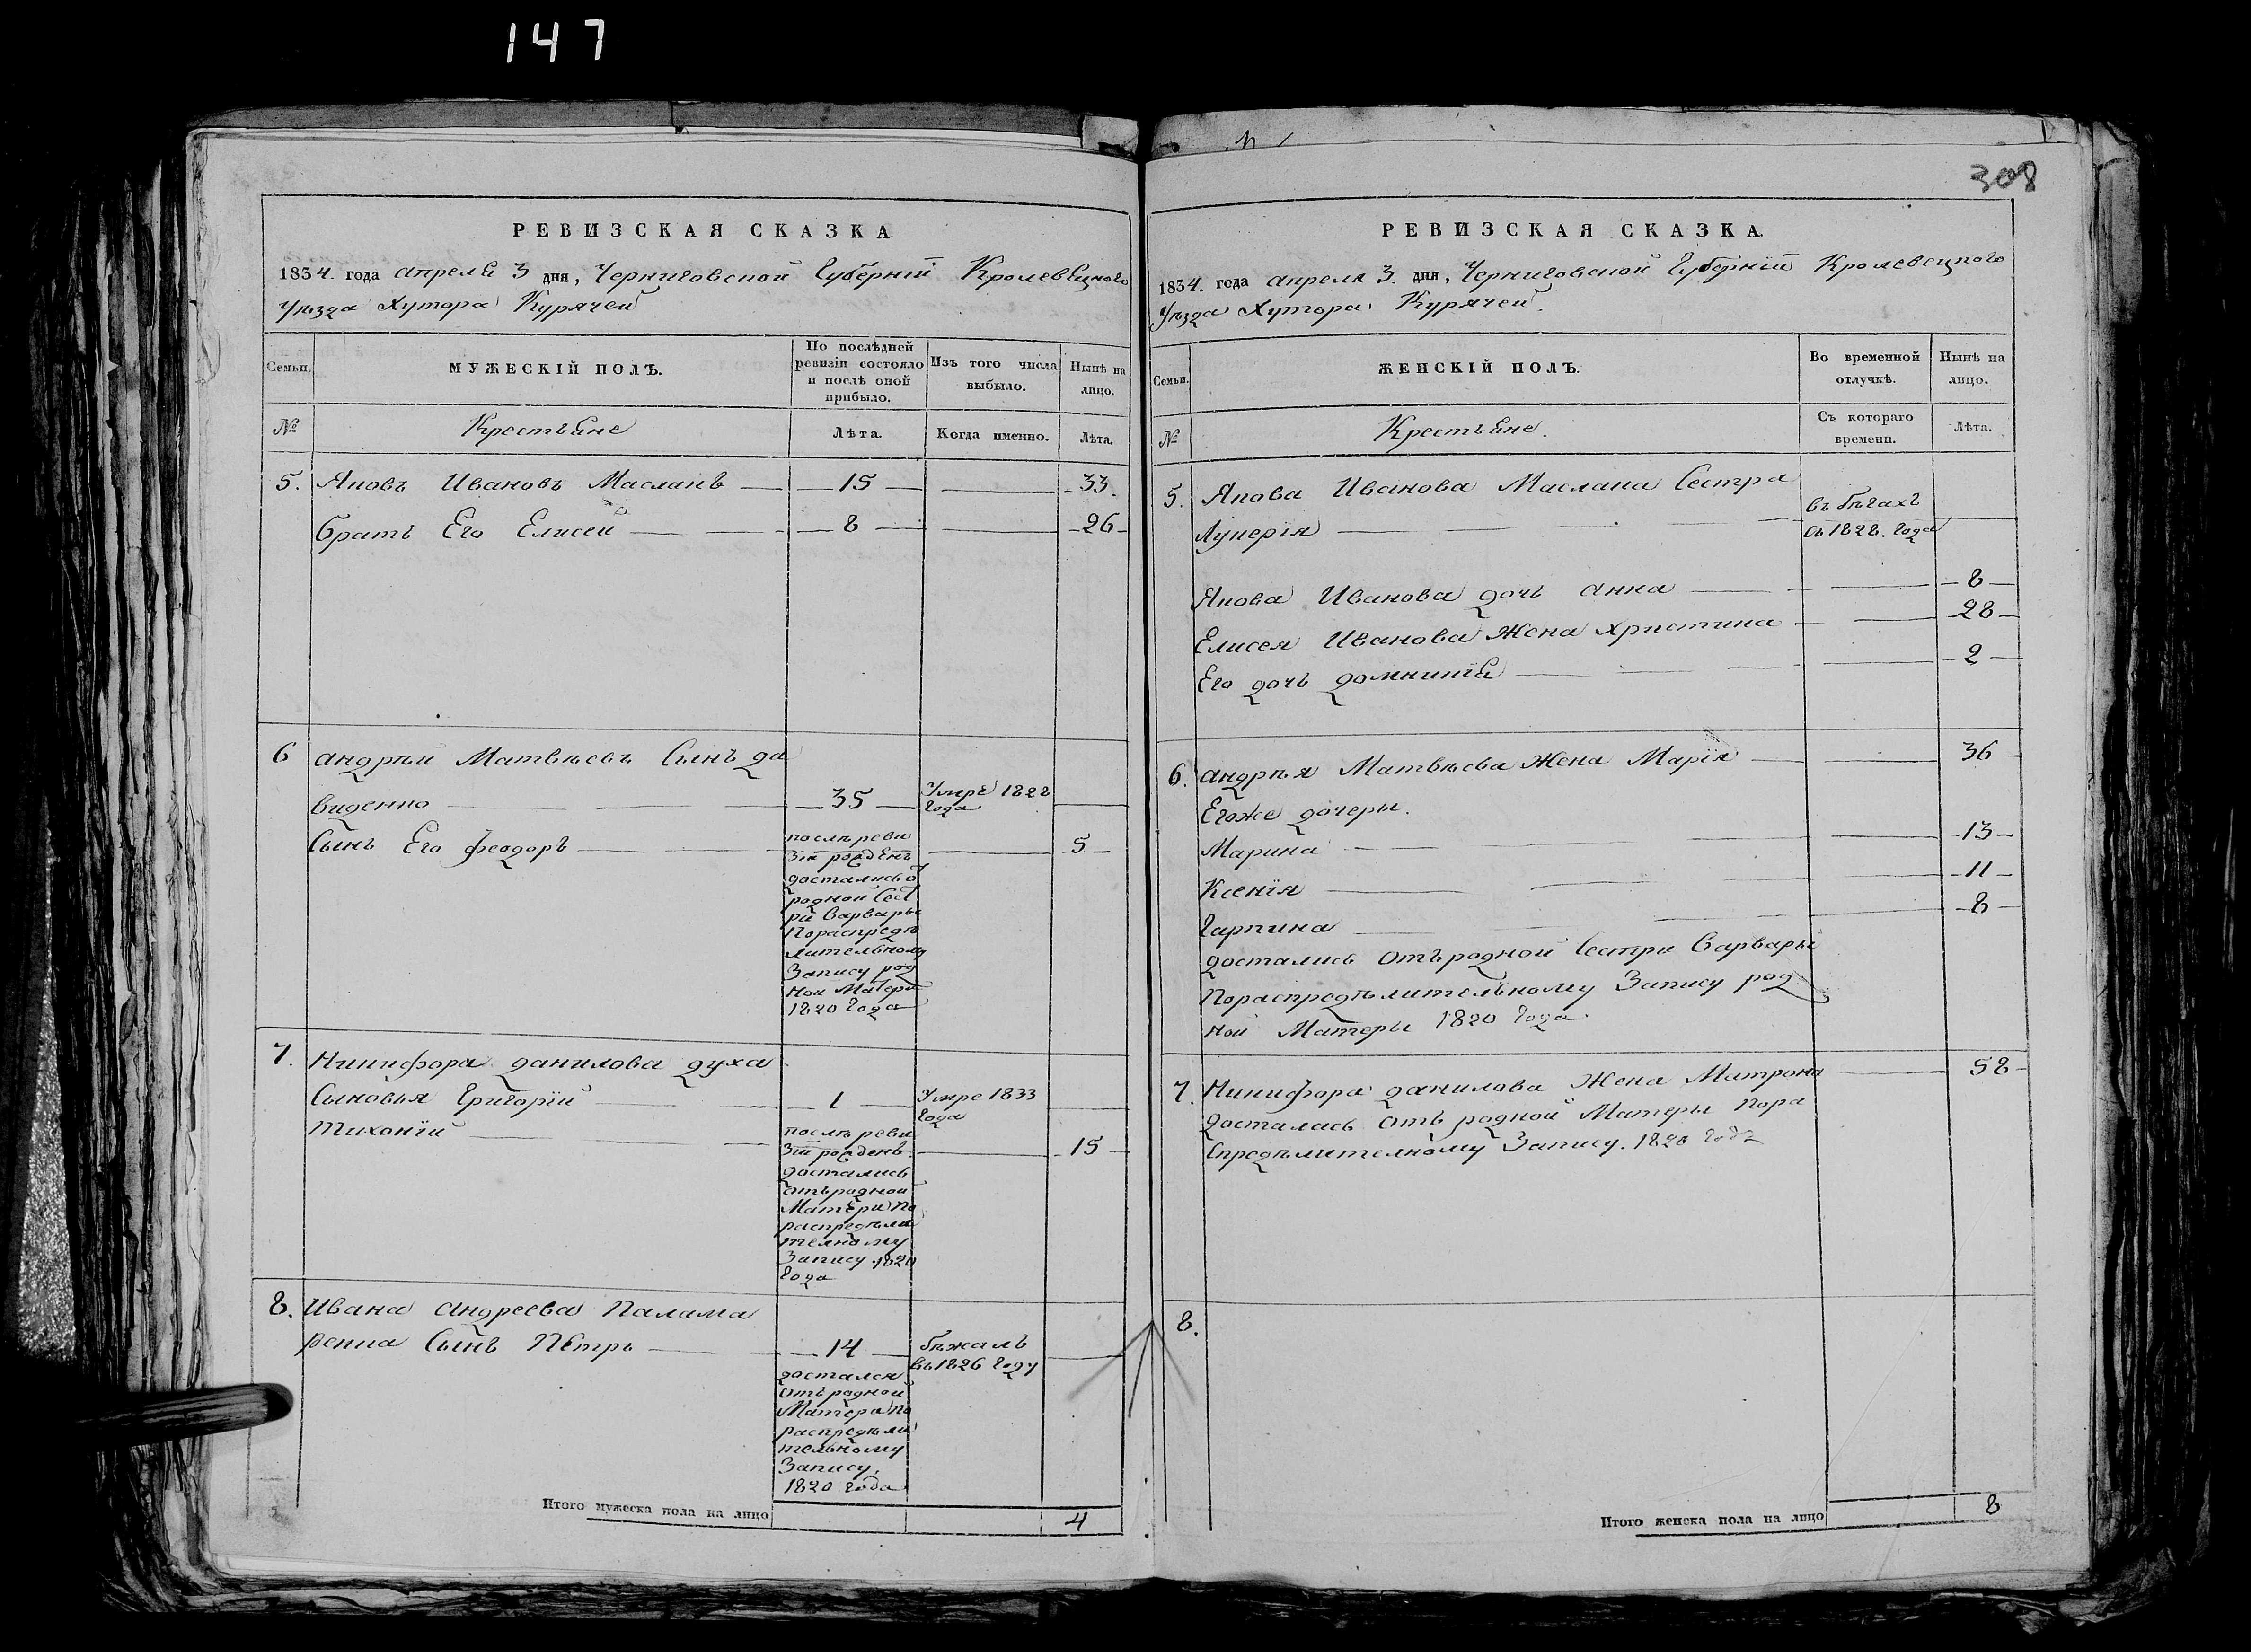 147
308
РЕВИЗСКАЯ СКАЗКА
1834. года апреля 3 дня, Черниговской Губерніи Кролевецкого
Уѣзда Хутора Курячей
Семьи.
МУЖЕСКІЙ ПОЛЪ.
По послѣдней
ревизіи состояло
и послѣ оной
прибыло.
Изъ того числа
выбыло.
Нынѣ на
лицо.
№
Крестьяне
Лѣта.
Когда именно.
Лѣта.
5. Яковъ Ивановъ Маслакъ 15 33.
братъ Его Елисей 8 26
6 андрѣй Матвѣевъ Сынъ да
виденко 35 Умре 1828
года
Сынъ Его феодоръ 5
послѣ реви
зіи рожденъ
достались о
родной Сест
ри Варвары
Пораспредѣ
лительному
Запису род
ной Матери
1820 года
7. Никифора данилова духа
Сыновья Григорій 1 Умре 1833
года
Тихоній 15
послѣ реви
зіи рожденъ
достались
отъ родной
Матери по
распредѣли
телному
Запису 1820
года
8. Ивана андреева Палама
ренка Сынъ Петръ 14 бѣжалъ
въ 1826 году
достался
отъ родной
Матери по
распредѣли
тельному
Запису,
1820 года
Итого мужеска пола на лицо 4
РЕВИЗСКАЯ СКАЗКА.
1834. года апреля 3. дня, Черниговской Губерніи Кролевецкого
Уѣзда Хутора Курячей.
Семьи.
ЖЕНСКІЙ ПОЛЪ.
Во временной
отлучкѣ.
Нынѣ на
лицо.
№
Крестьяне.
Съ котораго
времени.
Лѣта.
5. Якова Иванова Маслака Сестра
Лукерія
въ бѣгахъ
съ 1828. года
Якова Иванова дочь анна 8
Елисея Иванова Жена Христина 28
Его дочь домникія 2
6. андрѣя Матвѣева Жена Марія 36
Егоже дочеры.
Марина 13
Ксенія 11
Гарпина 8
достались отъ родной Сестри Варвары
Пораспредѣлительному Запису род
ной Матеры 1820 года.
7. Никифора данилова Жена Матрона 58
досталась отъ родной Матеры пора
спредѣлителному Запису. 1820 года
8.
Итого женска пола на лицо 8